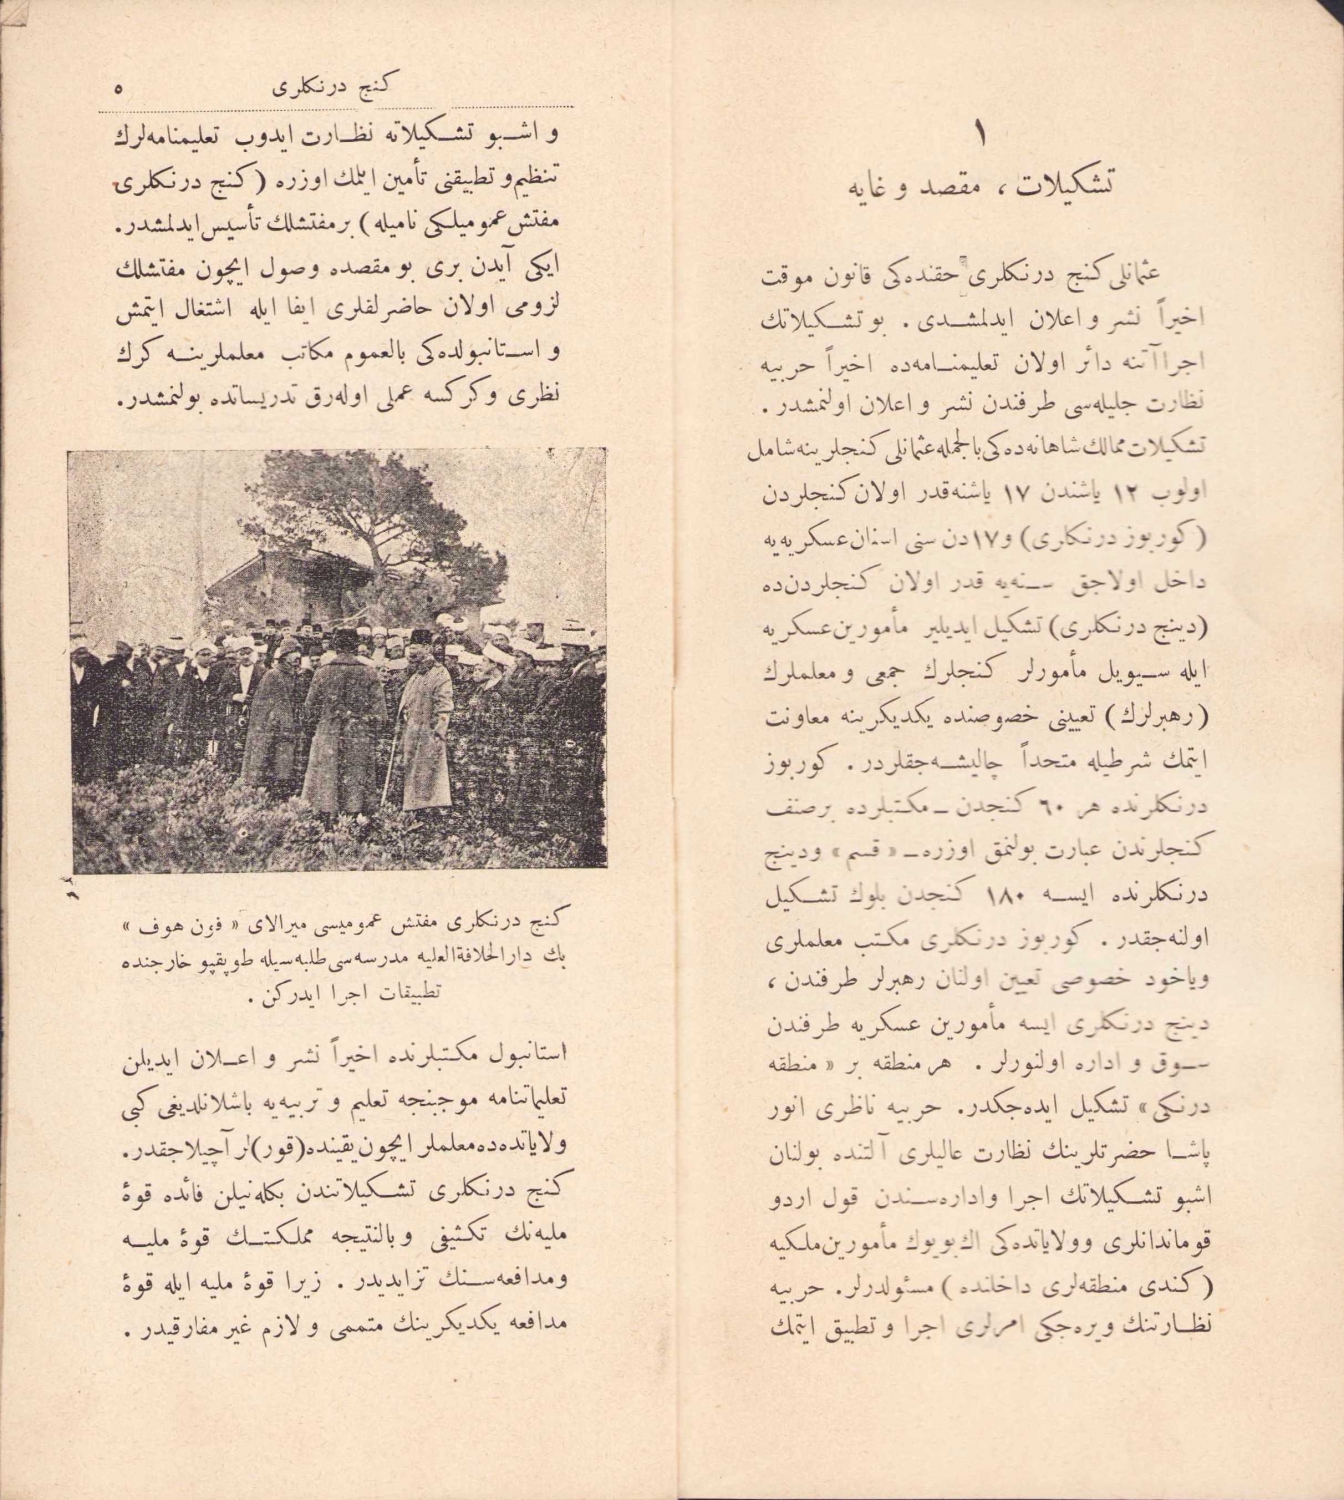 ١
تشكيلات ، مقصد و غايه
عثمانلى كنج درنكلرى حقنده‌كى قانون موقت
اخيراً نشر و اعلان ايدلمشدى . بو تشكيلاتك
اجراآتنه دائر اولان تعليمنامه‌ده اخيراً حربيه
نظارت جليله‌سى طرفندن نشر و اعلان اولنمشدر .
تشكيلات ممالك شاهانه‌ده‌كى بالجمله عثمانلى كنجلرينه شامل
اولوب ١٢ ياشندن ١٧ ياشنه قدر اولان كنجلردن
(كوربوز درنكلرى) و ١٧دن سنى اسنان عسكريه‌يه
داخل اولاجق سنه‌يه قدر اولان كنجلردن‌ده
(دينج درنكلرى) تشكيل ايديلير مأمورين عسكريه
ايله سيويل مأمورلر كنجلرك جمعى و معلملرك
(رهبرلرك) تعيينى خصوصنده يكديكرينه معاونت
ايتمك شرطيله متحداً چاليشه‌جقلردر . كوربوز
درنكلرنده هر ٦٠ كنجدن ـ مكتبلرده برصنف
كنجلرندن عبارت بولنمق اوزره ـ « قسم » ودينج
درنكلرنده ايسه ١٨٠ كنجدن بلوك تشكيل
اولنه‌جقدر . كوربوز درنكلرى مكتب معلملرى
وياخود خصوصى تعيين اولنان رهبرلر طرفندن ،
دينج درنكلرى ايسه مأمورين عسكريه طرفندن
سوق و اداره اولنورلر . هر منطقه بر « منطقه
درنكى » تشكيل ايده‌جكدر. حربيه ناظرى انور
پاشا حضرتلرينك نظارت عاليلرى آلتنده بولنان
اشبو تشكيلاتك اجرا واداره‌سندن قول اردو
قوماندانلرى وولاياتده‌كى اك بويوك مأمورين ملكيه
(كندى منطقه‌لرى داخلنده) مسئولدرلر. حربيه
نظارتنك ويره‌جكى امرلرى اجرا و تطبيق ايتمك
كنج درنكلرى ٥
و اشبو تشكيلاته نظارت ايدوب تعليمنامه‌لرك
تنظيم و تطبيقنى تأمين ايتمك اوزره (كنج درنكلرى
مفتش عموميلكى ناميله) بر مفتشلك تأسيس ايدلمشدر.
ايكى آيدن برى بو مقصده وصول ايچون مفتشلك
لزومى اولان حاضرلقلرى ايفا ايله اشتغال ايتمش
و استانبولده‌كى بالعموم مكاتب معلملرينه كرك
نظرى وكركسه عملى اوله‌رق تدريساتده بولنمشدر.
كنج درنكلرى مفتش عموميسى ميرالاى « فون هوف »
بك دارالخلافةالعليه مدرسه‌سى طلبه‌سيله طوپقپو خارجنده
تطبيقات اجرا ايدركن .
استانبول مكتبلرنده اخيراً نشر و اعلان ايديلن
تعليماتنامه موجبنجه تعليم و تربيه‌يه باشلانلديغى كبى
ولاياتده‌ده معلملر ايچون يقينده (قور)لر آچيلاجقدر.
كنج درنكلرى تشكيلاتندن بكله‌نيلن فائده قوهٔ
مليه‌نك تكثيفى و بالنتيجه مملكتك قوهٔ مليه
ومدافعه‌سنك تزايديدر . زيرا قوهٔ مليه ايله قوهٔ
مدافعه يكديكرينك متممى و لازم غير مفارقيدر .